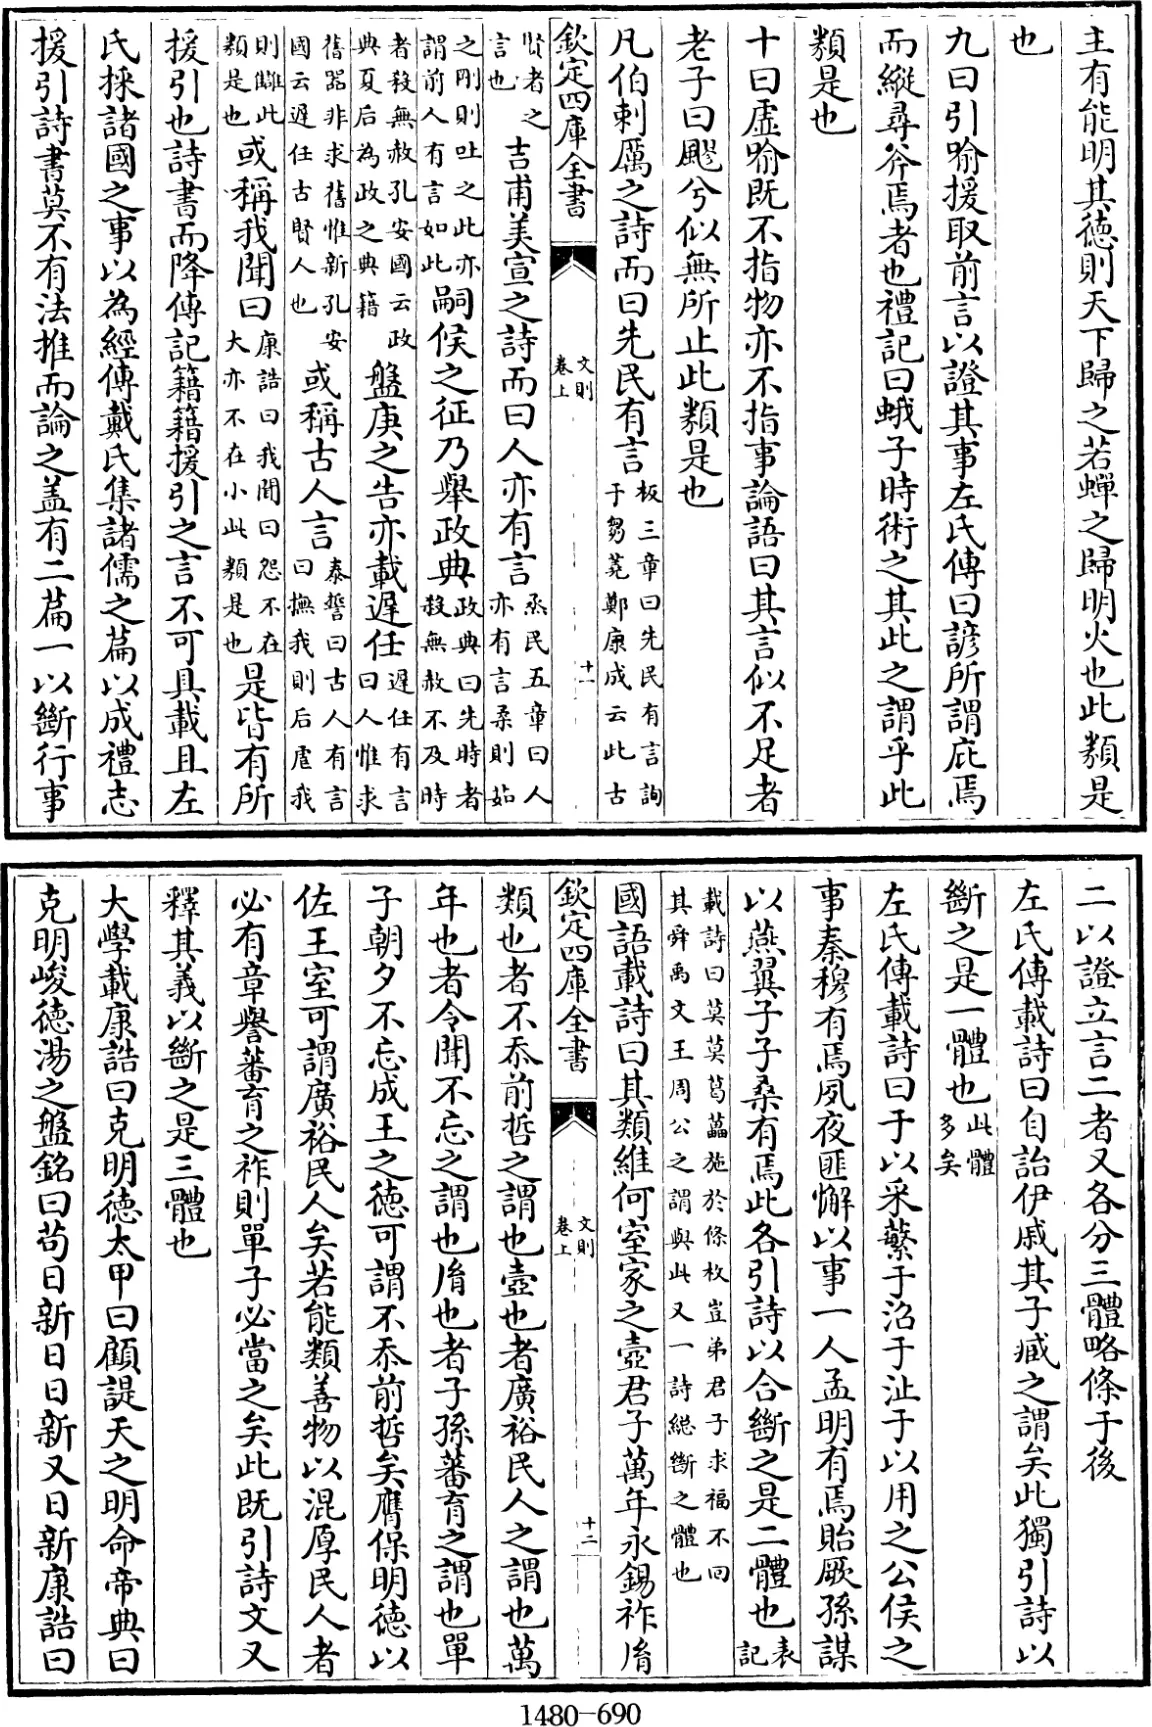 主有能明其德則天下歸之若蟬之歸明火也此類是
也
九曰引喻援取前言以證其事左氏傳曰諺所謂庇焉
而縱尋斧焉者也禮記曰蛾子時術之其此之謂乎此
類是也
十曰虛喻既不指物亦不指事論語曰其言似不足者
老子曰飂兮似無所止此類是也
凡伯刺厲之詩而曰先民有言板三章曰先民有言詢于芻蕘鄭康成云此古
欽定四庫全書
文則
卷上
十一
賢者之言也吉甫美宣之詩而曰人亦有言烝民五章曰人亦有言柔則茹
之剛則吐之此亦謂前人有言如此嗣侯之征乃舉政典政典曰先時者殺無赦不及時
者殺無赦孔安國云政典夏后為政之典籍盤庚之告亦載遲任遲任有言曰人惟求
舊器非求舊惟新孔安國云遲任古賢人也或稱古人言泰誓曰古人有言曰撫我則后虐我
則讎此類是也或稱我聞曰康誥曰我聞曰怨不在大亦不在小此類是也是皆有所
援引也詩書而降傳記籍籍援引之言不可具載且左
氏採諸國之事以為經傳戴氏集諸儒之篇以成禮志
援引詩書莫不有法推而論之蓋有二篇一以斷行事
二以證立言二者又各分三體略條于後
左氏傳載詩曰自詒伊戚其子臧之謂矣此獨引詩以
斷之是一體也此體多矣
左氏傳載詩曰于以采蘩于沼于沚于以用之公侯之
事秦穆有焉夙夜匪懈以事一人孟明有焉貽厥孫謀
以燕翼子子桑有焉此各引詩以合斷之是二體也表記
載詩曰莫莫葛藟施於條枚豈弟君子求福不回其舜禹文王周公之謂與此又一詩總斷之體也
國語載詩曰其類維何室家之壼君子萬年永錫祚胤
欽定四庫全書
文則
卷上
十二
類也者不忝前哲之謂也壼也者廣裕民人之謂也萬
年也者令聞不忘之謂也胤也者子孫蕃育之謂也單
子朝夕不忘成王之德可謂不忝前哲矣膺保明德以
佐王室可謂廣裕民人矣若能類善物以混厚民人者
必有章譽蕃育之祚則單子必當之矣此既引詩文又
釋其義以斷之是三體也
大學載康誥曰克明德太甲曰顧諟天之明命帝典曰
克明峻德湯之盤銘曰苟日新日日新又日新康誥曰
1480-690